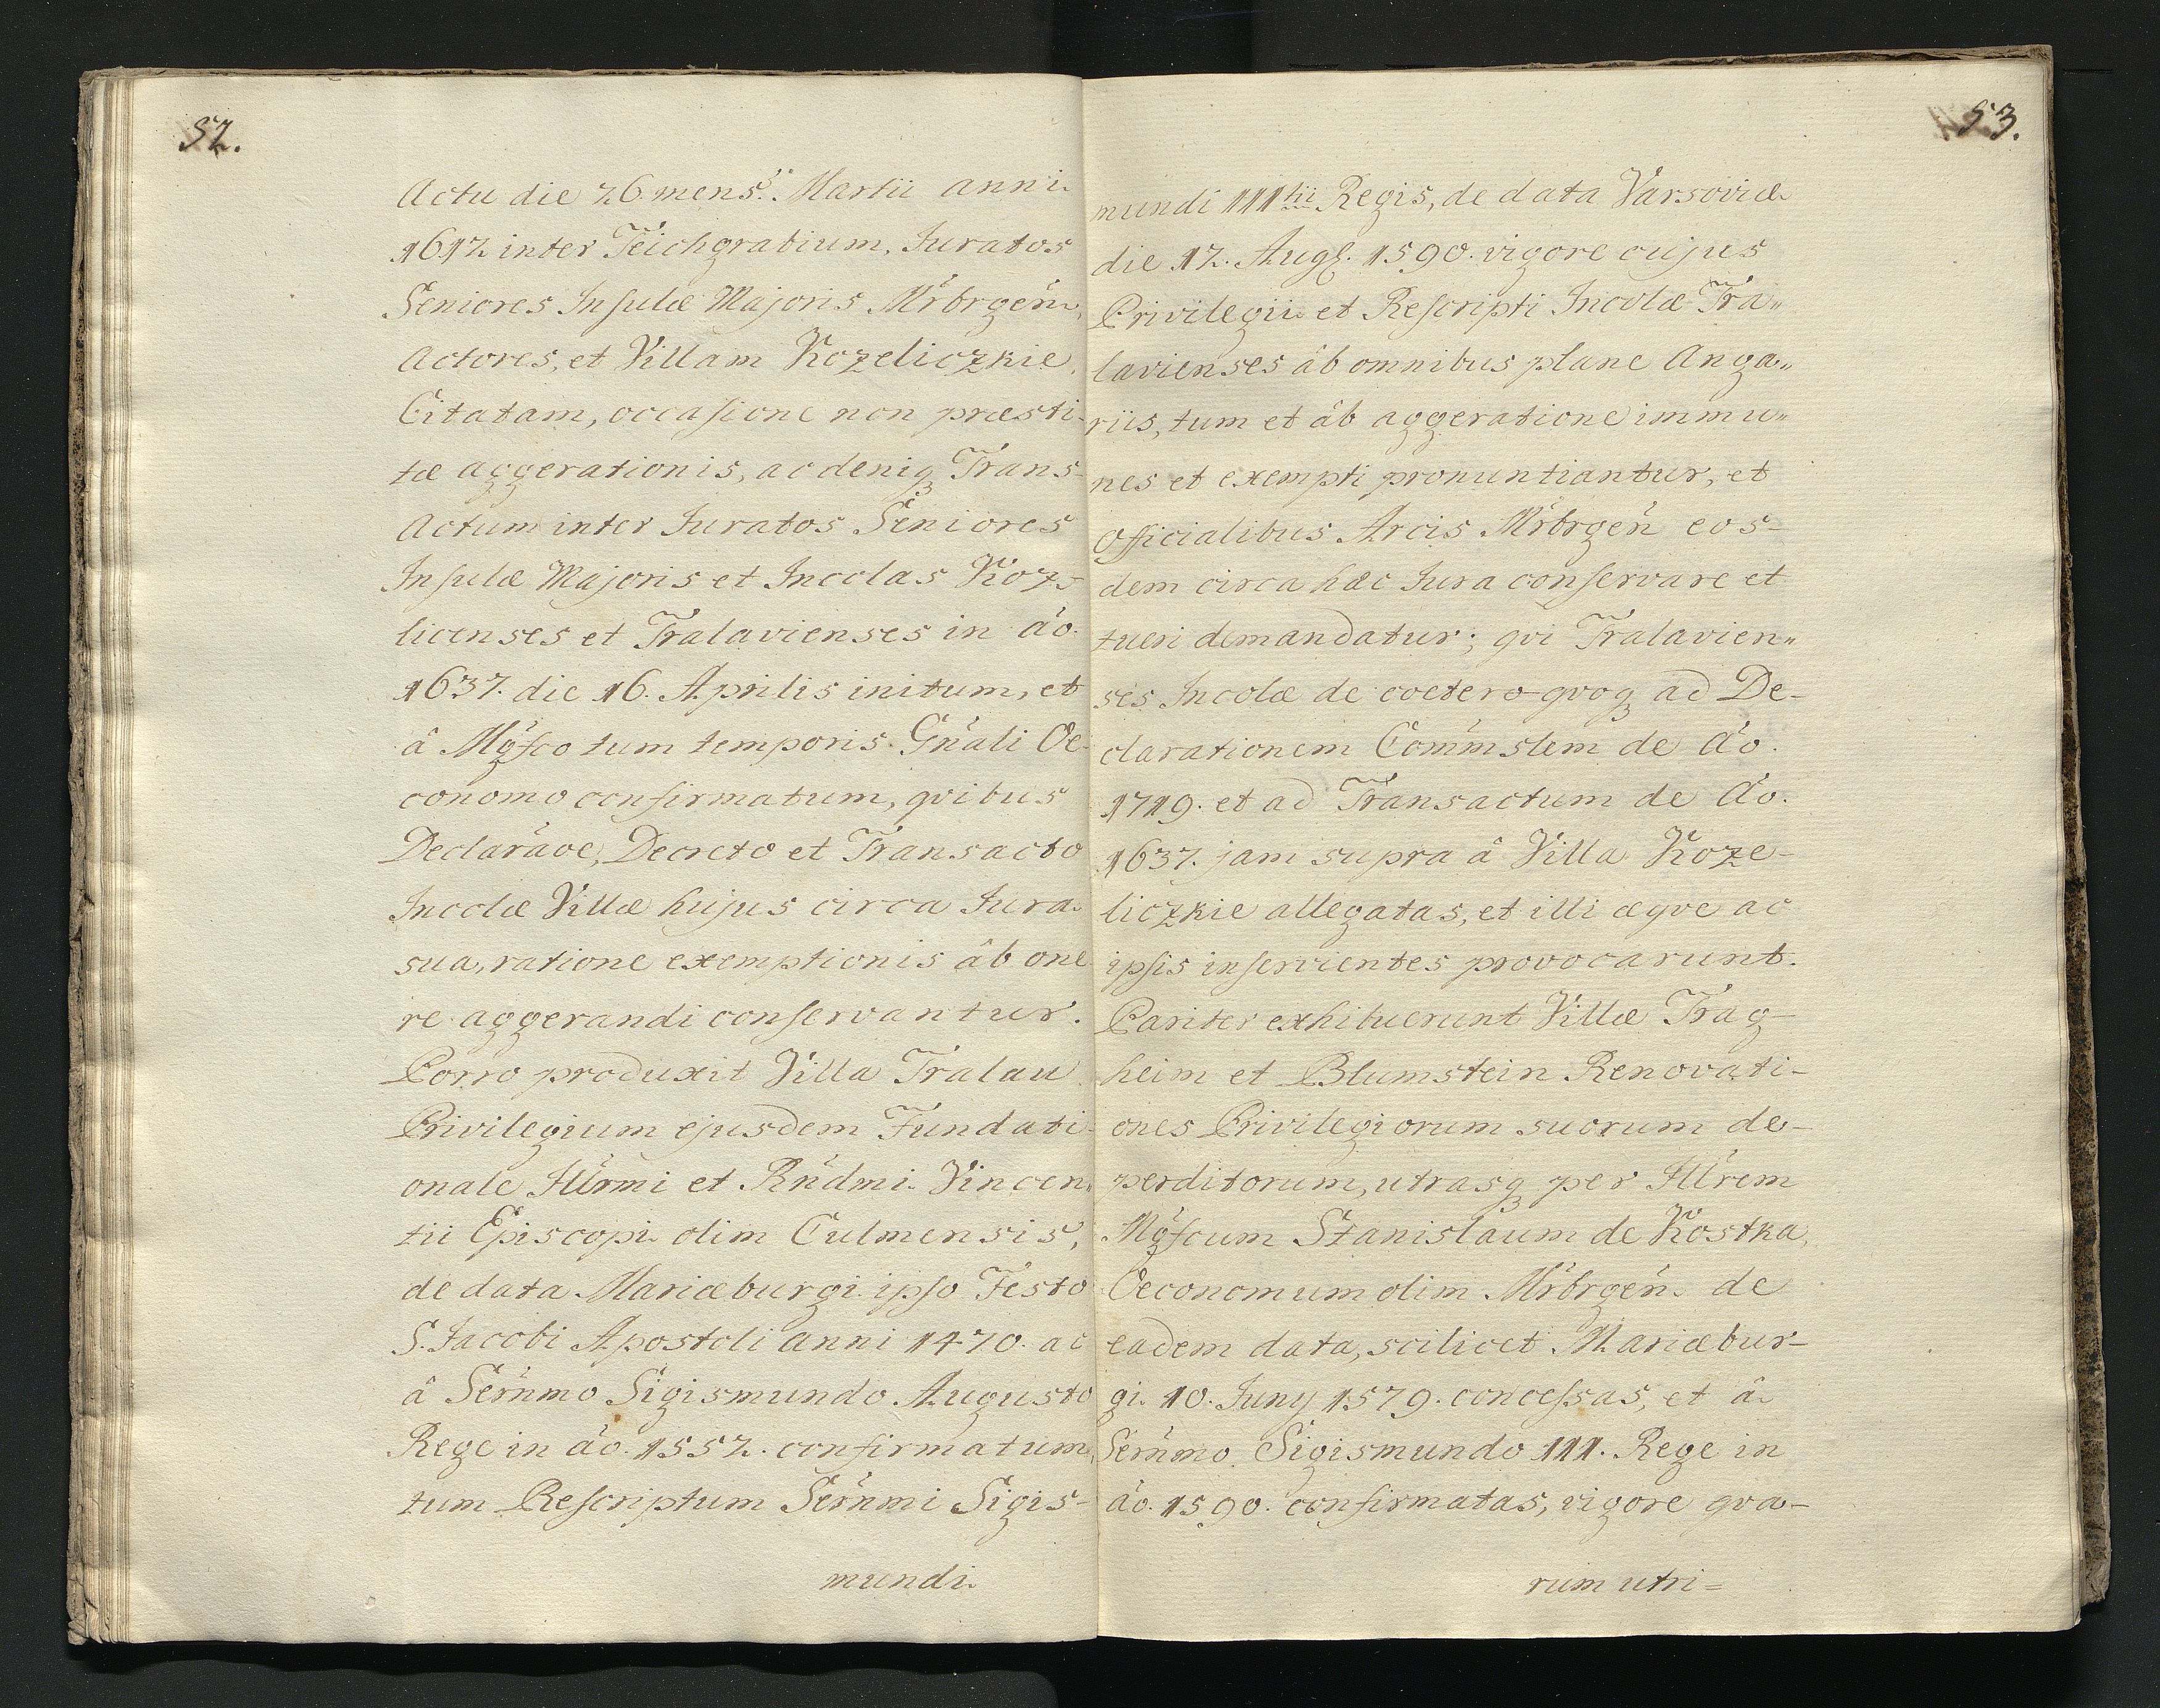 52.
Actu die 26 mens: Martii anni
1612 inter Teichgrabium, Juratos
Seniores Insulæ Majoris Mrbrgen,
Actores, et Villam Kozeliczkie,
Citatam, occasione non præsti-
tæ aggerationis, ac deniq Trans-
Actum inter Juratos Seniores
Insulæ Majoris et Incolas Koze-
licenses et Tralavienses in ao.
1637. die 16. Aprilis initum, et
â Mgfco tum temporis Gnali Oe-
conomo confirmatum, qvibus
Declarãoe, Decreto et Transacto
Incolæ Villæ hujus circa Jura
sua, ratione exemptionis âb one-
re aggerandi conservantur.
Porro produxit Villa Tralau
Privilegium ejusdem Fundati-
onale Illrmi et Rndmi Vincen„
tii Episcopi olim Culmensis,
de data Mariæburgi ipso Festo
S. Jacobi Apostoli anni 1470. ac
â Sernmo Sigismundo Augusto
Rege in ao. 1552. confirmatum,
tum Rescriptum Sernmi Sigis-
mundi
53.
mundi IIItii Regis, de data Varsoviæ
die 12. Augs. 1590. vigore cujus
Privilegii et Rescripti Incolæ Tra„
lavienses âb omnibus plane Anga„
riis, tum et âb aggeratione immu„
nes et exempti pronuntiantur, et
Officialibus Arcis Mrbrgen eos-
dem circa hæc Jura conservare et
tueri demandatur; qvi Tralavien„
ses Incolæ de coetero qvoq ad De-
clarationem Commslem de Ao.
1719. et ad Transactum de Ao.
1637. jam supra â Villa Koze-
liczkie allegatas, et illi æqve ac
ipsis inservientes provocarunt.
Pariter exhibuerunt Villæ Trag-
heim et Blumstein Renovati-
ones Privilegiorum suorum de-
perditorum, utrasq per Illrem
Mgfcum Stanislaum de Kostka,
Oeconomum olim Mrbrgen. de
eadem data, scilicet Mariæbur-
gi. 10. Juny 1579. concessas, et â
Sernmo Sigismundo III. Rege in
ao. 1590. confirmatas, vigore qva-
rum utri=